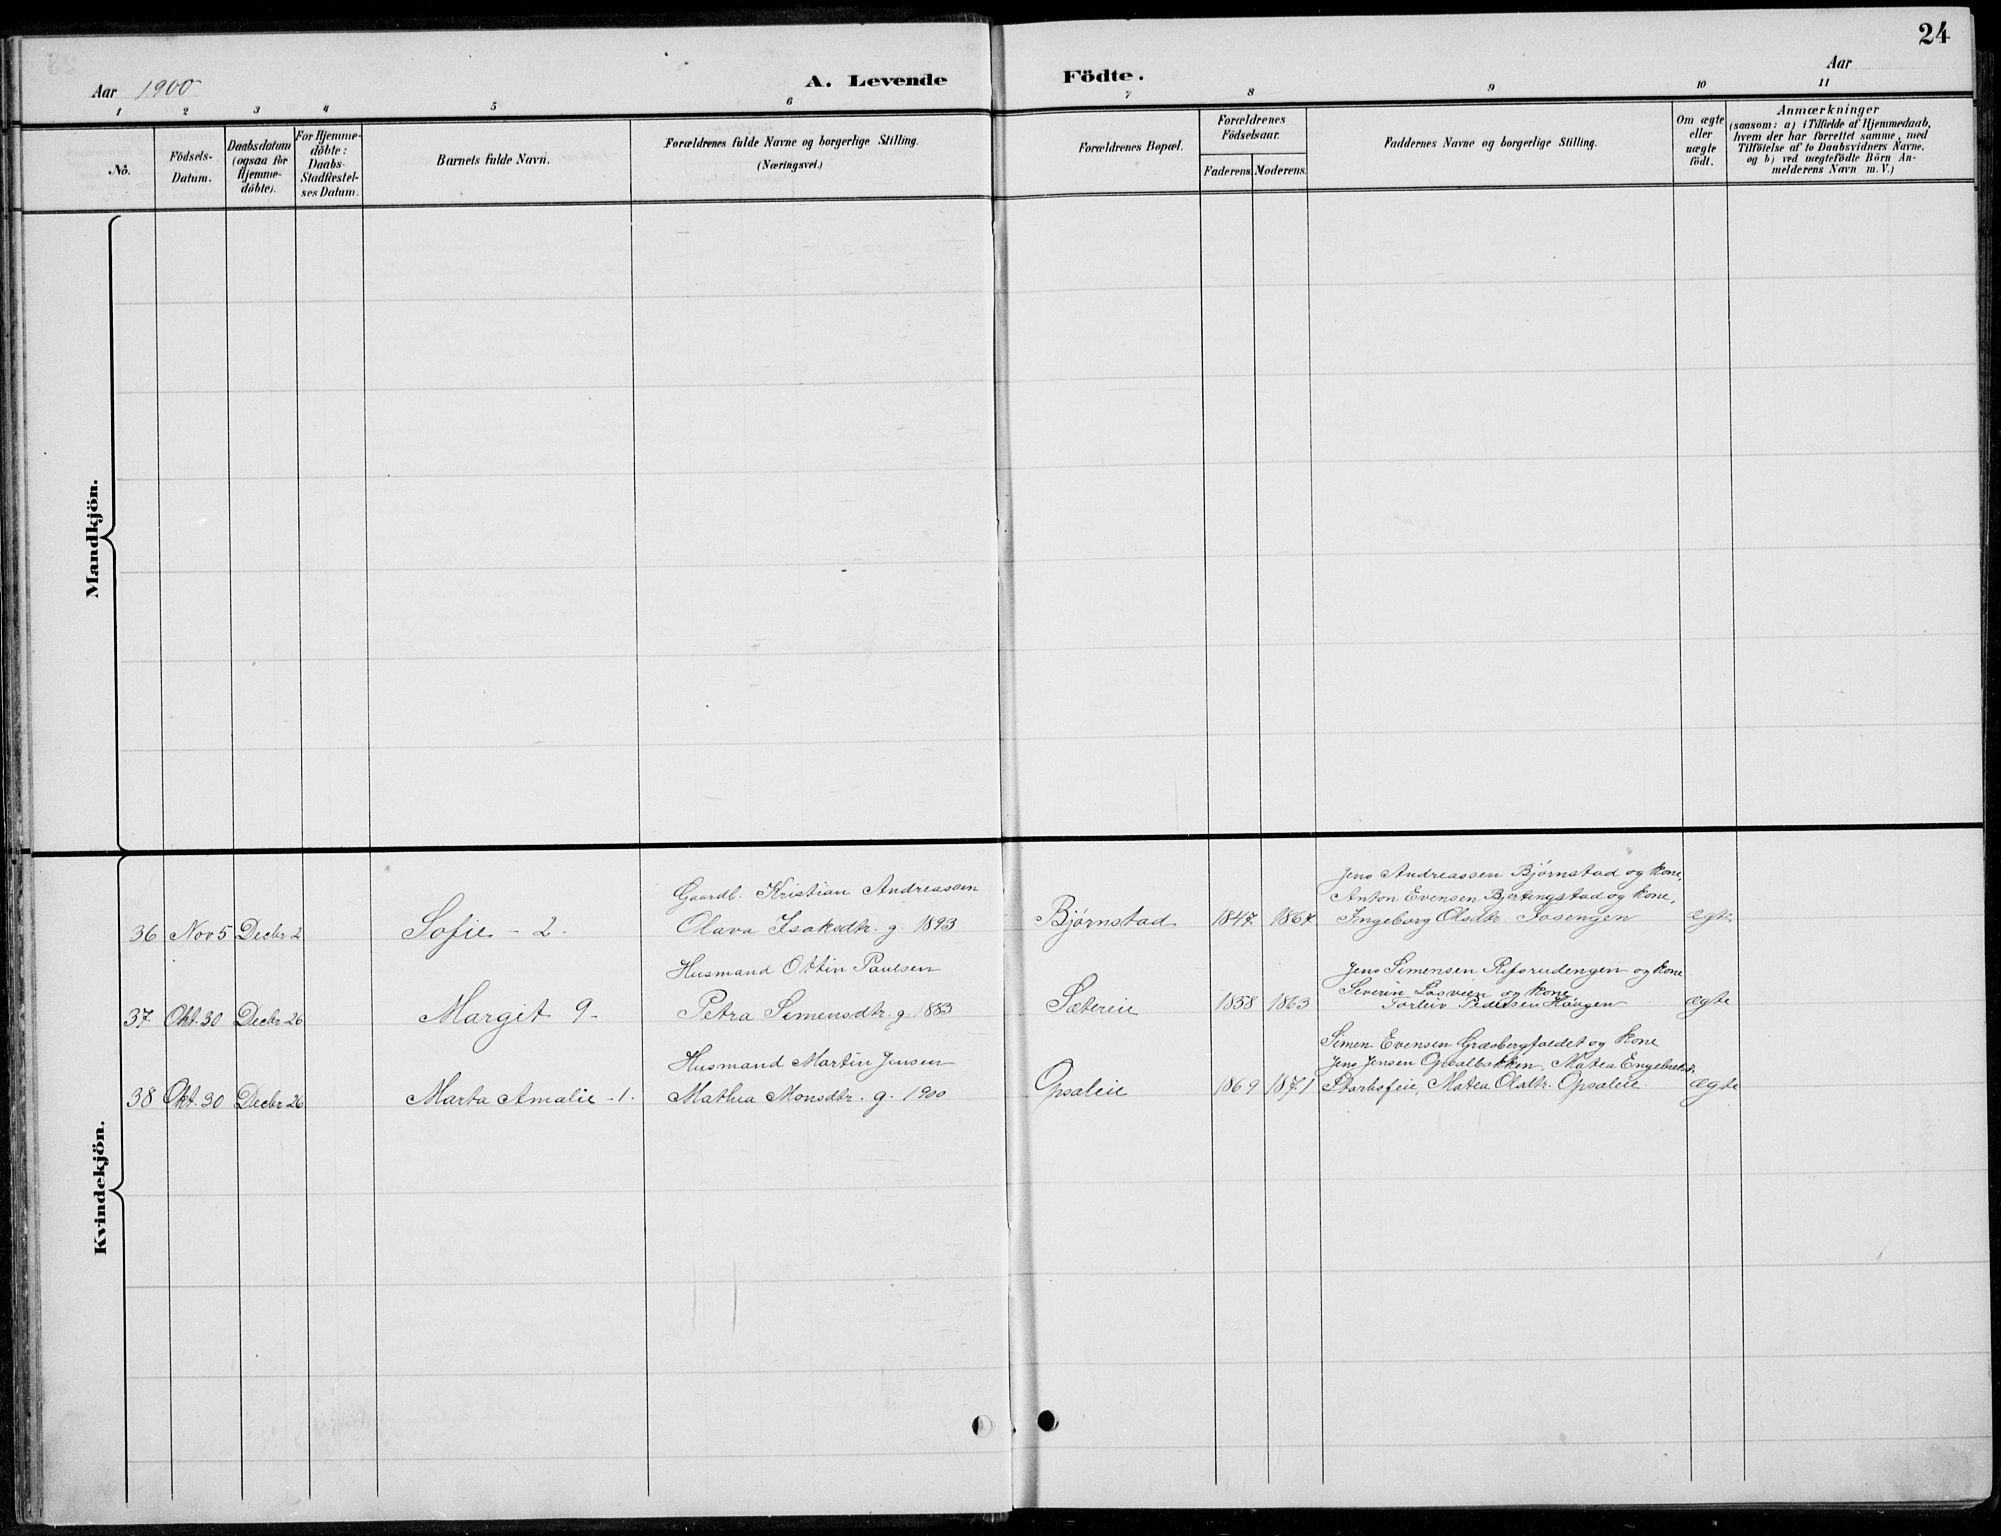 24
Aar 1900
A. Levende Födte.
Aar
1 2 3 4 5 6 7 8 9 10 11
No.
Födsels-Datum.
Daabsdatum (ogsaa for Hjemme-döbte).
For Hjemme-döbte: Daabs-Stadfæstel-ses Datum.
Barnets fulde Navn.
Forældrenes fulde Navne og borgerlige Stilling.
(Næringsvei.)
Forældrenes Bopæl.
Forældrenes Födselsaar.
Faderens. Moderens.
Faddernes Navne og borgerlige Stilling.
Om ægte eller uægte födt.
Anmærkninger
(saasom: a) i Tilfælde af Hjemmedaab,
hvem der har forrettet samme, med
Tilföielse af to Daabsvidners Navne.
og b) ved uægtefödte Börn An-
melderens Navn m. V.)
Mandkjön.
Kvindekjön.
Gaardb. Kristian Andreassen
Jens Andreassen Bjørnstad og kone,
Anton Evensen Bjertingstad og kone,
36 Nov 5 Decbr 2 Sofie - 2 - Olava Isaksdtr. g. 1893 Bjørnstad 1847 1867 Ingeborg Olsdtr. Fosengen ægte
Husmand Ottin Paulsen
Jens Simensen Rifsrudengen og kone
Severin Losveen og kone
37 Okt. 30 Decbr 26 Margit 9 - Petra Simensdtr. g. 1883 Sætereie 1858 1863 Torleiv Pedersen Haugen ægte
Husmand Martin Jensen
Simen Evensen Græsbergfaldet og kone
Jens Jensen Opsalbakken, Matea Engebretsd.
38 Okt. 30 Decbr 26 Marta Amalie - 1 - Mathea Monsdtr. g. 1900 Opsaleie 1869 1871 Matea Olsdtr. Opsaleie. ægte